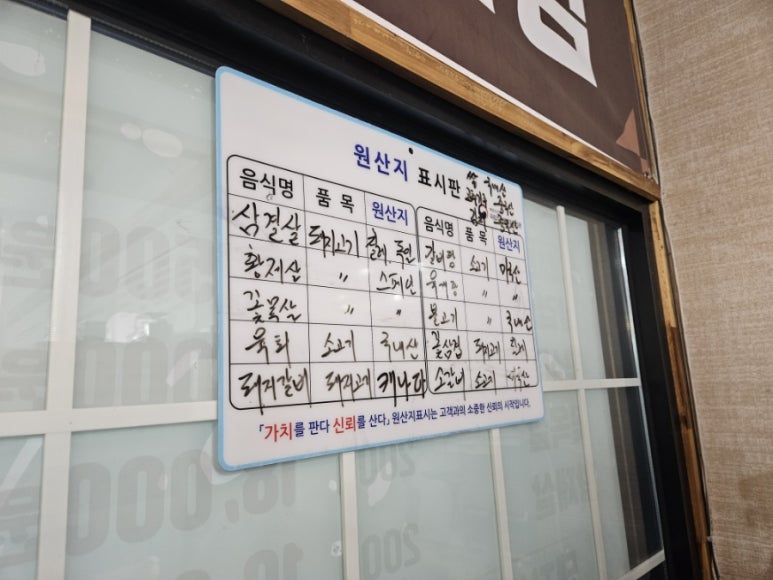 원산지 표시판
쌀 국내산
음식명 품목 원산지
삼겹살 돼지고기 칠레, 독일
황제살 〃 스페인
꽃목살 〃 〃
육회 소고기 국내산
돼지갈비 돼지고기 캐나다
음식명 품목 원산지
갈비탕 소고기 미국산
육개장 〃 〃
불고기 〃 국내산
꽃삼겹 돼지고기 칠레
소갈비 소고기 미국산
「가치를 판다 신뢰를 산다」 원산지표시는 고객과의 소중한 신뢰의 시작입니다.
18,000